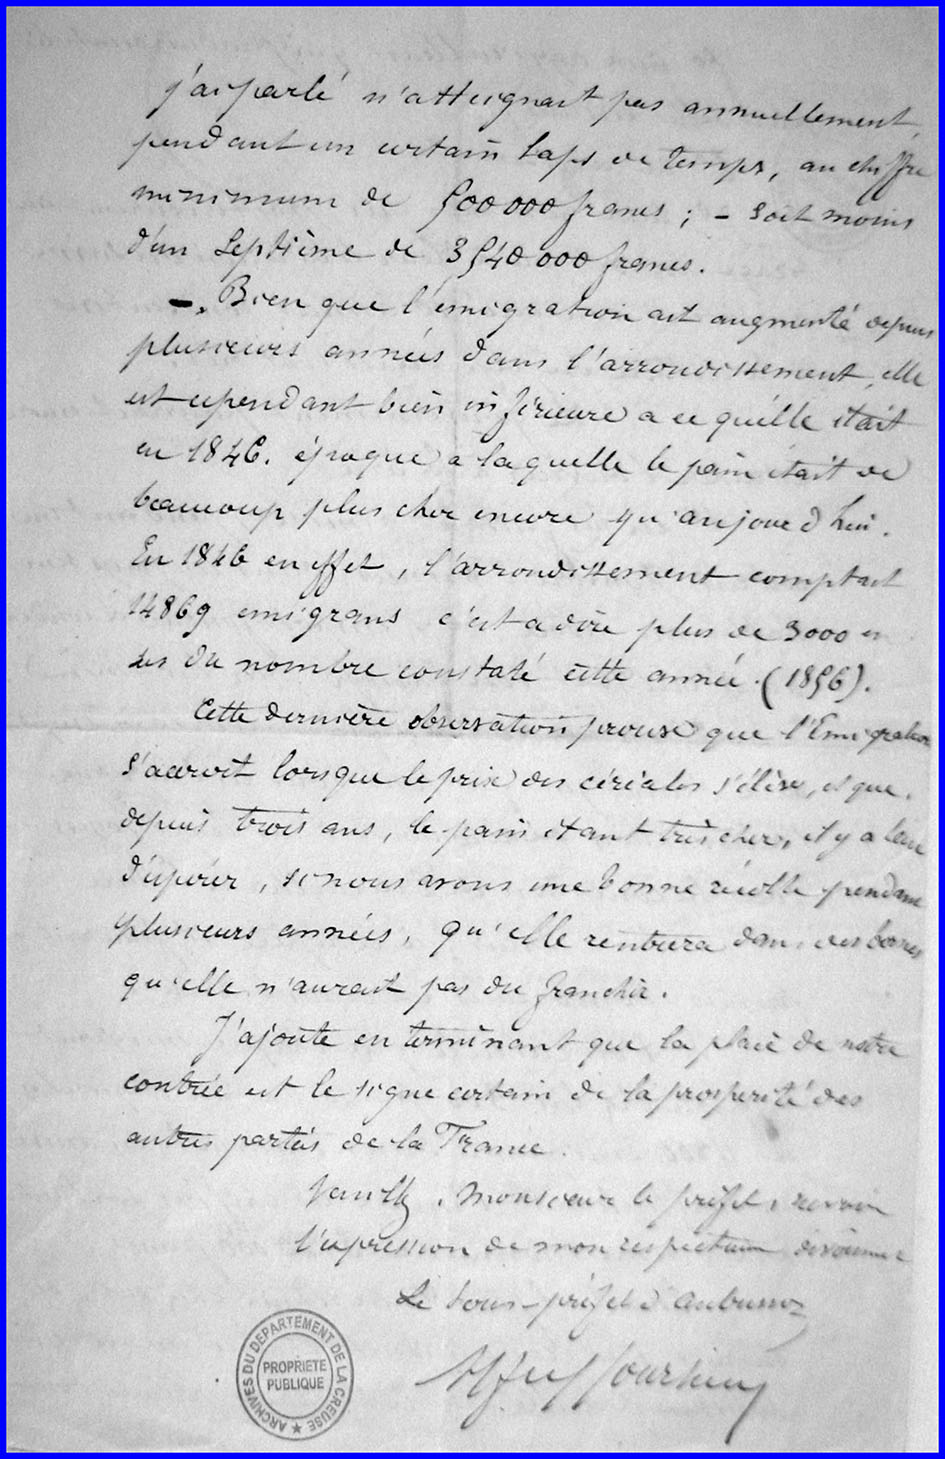 j'ai parlé n'atteignait pas annuellement,
pendant un certain laps de temps, au chiffre
minimum de 500 000 francs ; - soit moins
d'un Septième de 3540 000 francs.
-. Bien que l'émigration ait augmenté depuis
plusieurs années dans l'arrondissement, elle
est cependant bien inférieure a ce qu'elle était
en 1846. époque a laquelle le pain était de
beaucoup plus cher encore qu'aujourd'hui.
En 1846 en effet, l'arrondissement comptait
14869 émigrans c'est a dire plus de 3000 en
sus du nombre constaté cette année. (1856).
Cette dernière observation prouve que l'Emigration
s'accroit lorsque le prix des céréales s'élève, et que,
depuis trois ans, le pain étant très cher, il y a lieu
d'espérer, si nous avons une bonne récolte pendant
plusieurs années, qu'elle rentrera dans des bornes
qu'elle n'aurait pas du franchir.
J'ajoute en terminant que la plaie de notre
contrée est le signe certain de la prospérité des
autres parties de la France.
Veuillez, Monsieur le préfet, recevoir
l'expression de mon respectueux dévouement
Le Sous-préfet d'Aubusson
ARCHIVES DU DEPARTEMENT DE LA CREUSE
PROPRIETE
PUBLIQUE